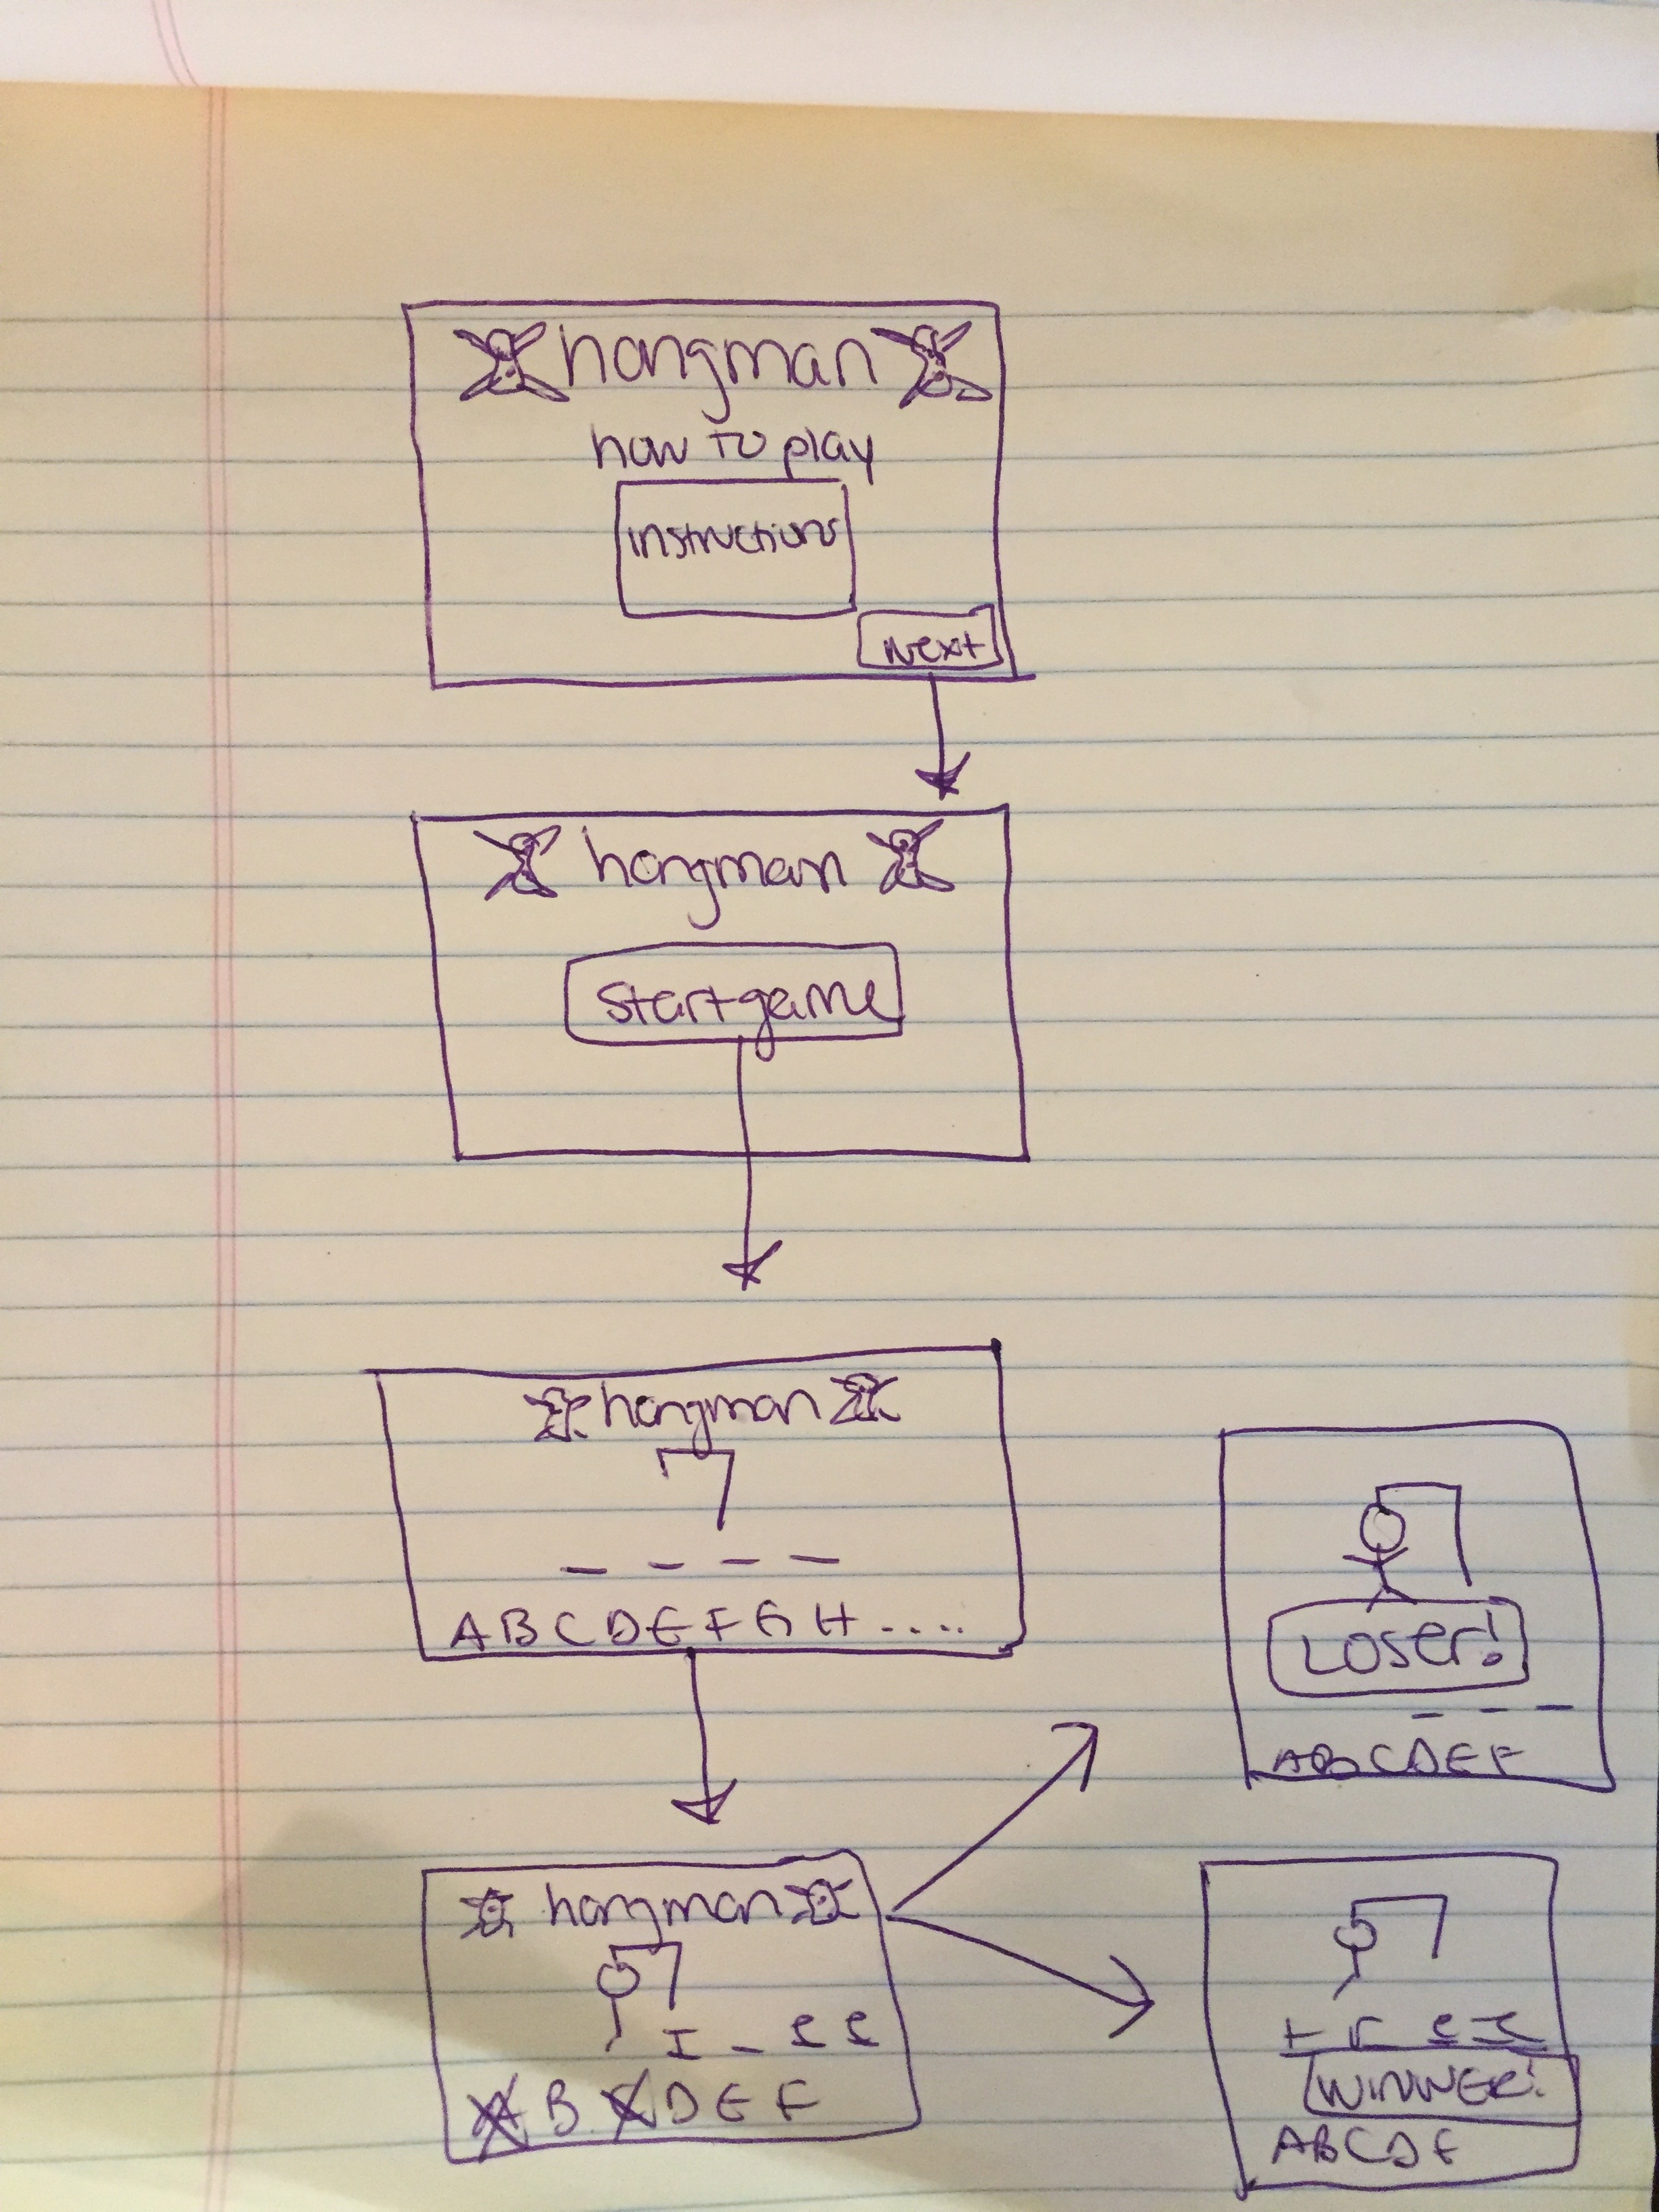 hangman
how to play
instructions
Next
hangman
start game
hangman
_ _ _ _
A B C D E F G H ....
Loser!
_ _ _
A B C D E F
hangman
T _ e e
A B C D E F
t r e e
WINNER!
A B C D E